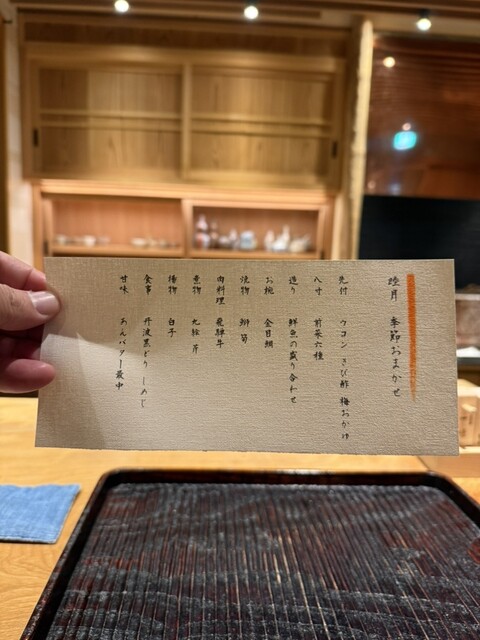 睦月 季節おまかせ
先付 ウコン きび酢 梅おかゆ
八寸 前菜六種
造り 鮮魚の盛り合わせ
お椀 金目鯛
焼物 鰤 筍
肉料理 飛騨牛
煮物 九絵 芹
揚物 白子
食事 丹波黒どり しめじ
甘味 あんバター最中